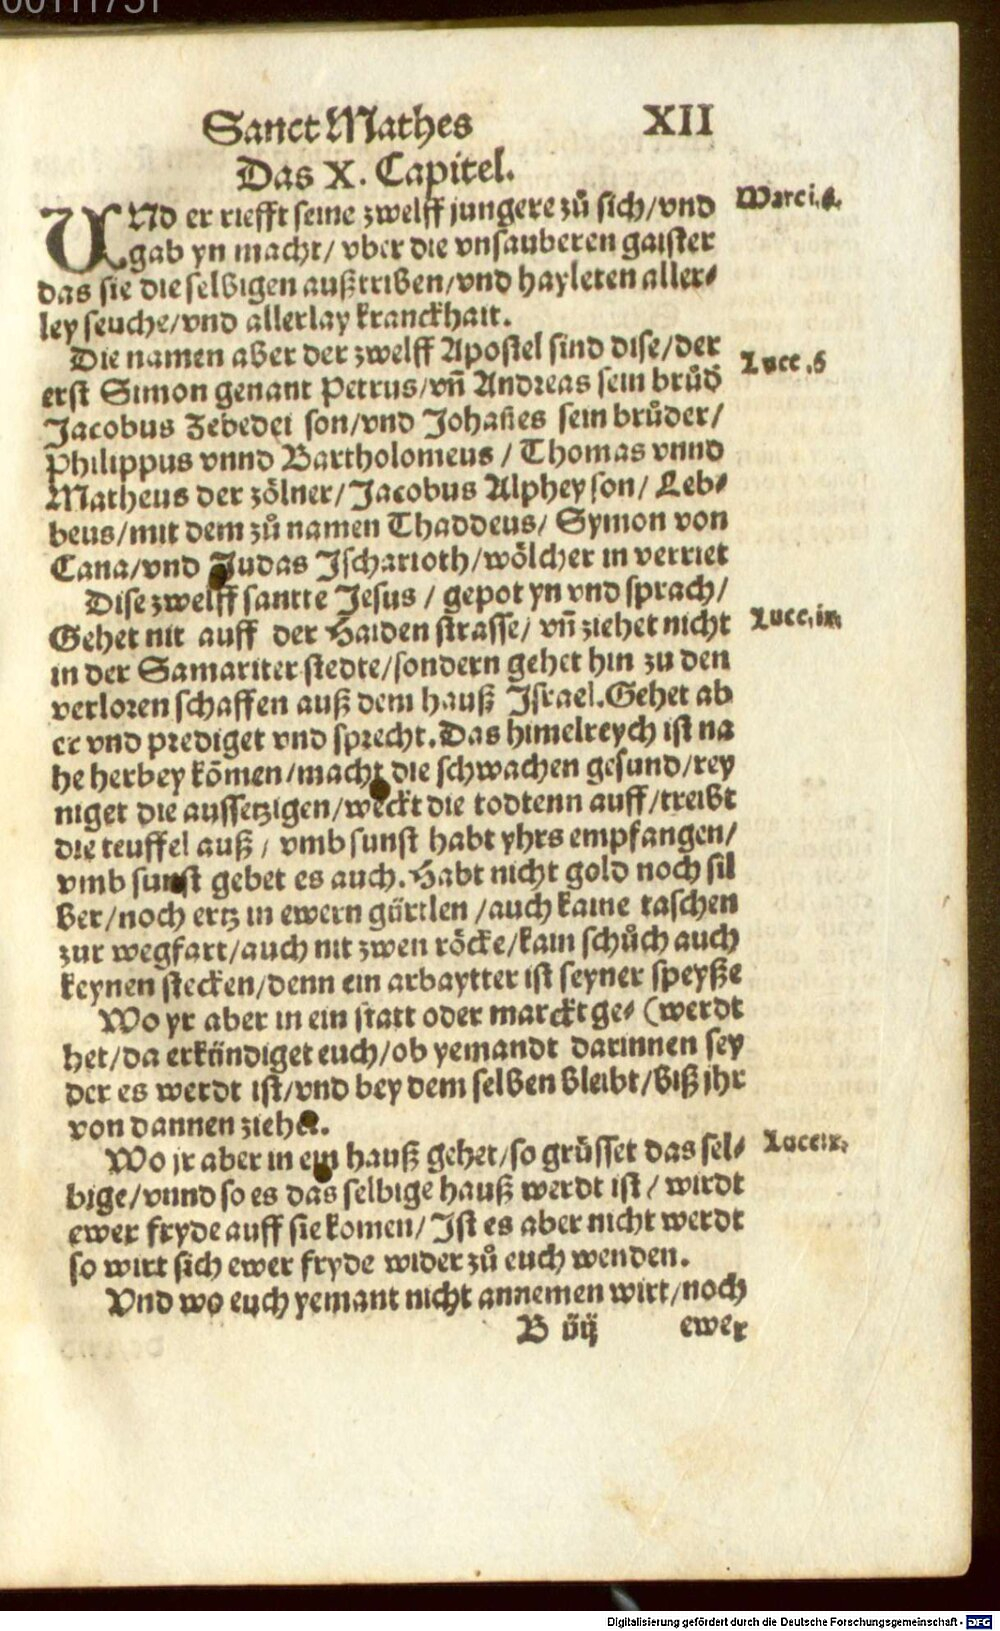 00111731
Sanct Mathes XII
Das X. Capitel.
VNd er riefft seine zwelff jungere zů sich/vnd Marci.
gab yn macht/ vber die vnsauberen gaister
das sie die selbigen außtriben/vnd hayleten aller⸗
ley seuche/vnd allerlay kranckhait.
Die namen aber der zwelff Apostel sind dise/der Luce .6
erst Simon genant Petrus/vñ Andreas sein brůd
Jacobus Zebedei son/vnd Johañes sein brůder/
Philippus vnnd Bartholomeus / Thomas vnnd
Matheus der zölner/Jacobus Alphey son/ Leb⸗
beus/mit dem zů namen Thaddeus/ Symon von
Cana/vnd Judas Jscharioth/wölcher in verriet
Dise zwelff santte Jesus / gepot yn vnd sprach/
Gehet nit auff der Haiden strasse/ vñ ziehet nicht Luce.
in der Samariter stedte/sondern gehet hin zu den
verloren schaffen auß dem hauß Jsrael.Gehet ab
er vnd prediget vnd sprecht.Das himelreych ist na
he herbey kömen/macht die schwachen gesund/rey
niget die aussetzigen/weckt die todtenn auff/treibt
die teuffel auß / vmb sunst habt yhrs empfangen/
vmb sunst gebet es auch.Habt nicht gold noch sil
ber/noch ertz in ewern gürtlen /auch kaine taschen
zur wegfart/auch nit zwen röcke/kain schůch auch
keynen stecken/denn ein arbaytter ist seyner speyße
Wo yr aber in ein statt oder marckt ge⸗ (werdt
het/da erkündiget euch/ob yemandt darinnen sey
der es werdt ist/vnd bey dem selben bleibt/biß jhr
von dannen ziehet.
Wo jr aber in ein hauß gehet/so grüsset das sel⸗ Luce.x.
bige/vnnd so es das selbige hauß werdt ist / wirdt
ewer fryde auff sie komen/ Jst es aber nicht werdt
so wirt sich ewer fryde wider zů euch wenden.
Vnd wo euch yemant nicht annemen wirt/noch
B iiij ewer
Digitalisierung gefördert durch die Deutsche Forschungsgemeinschaft - DFG